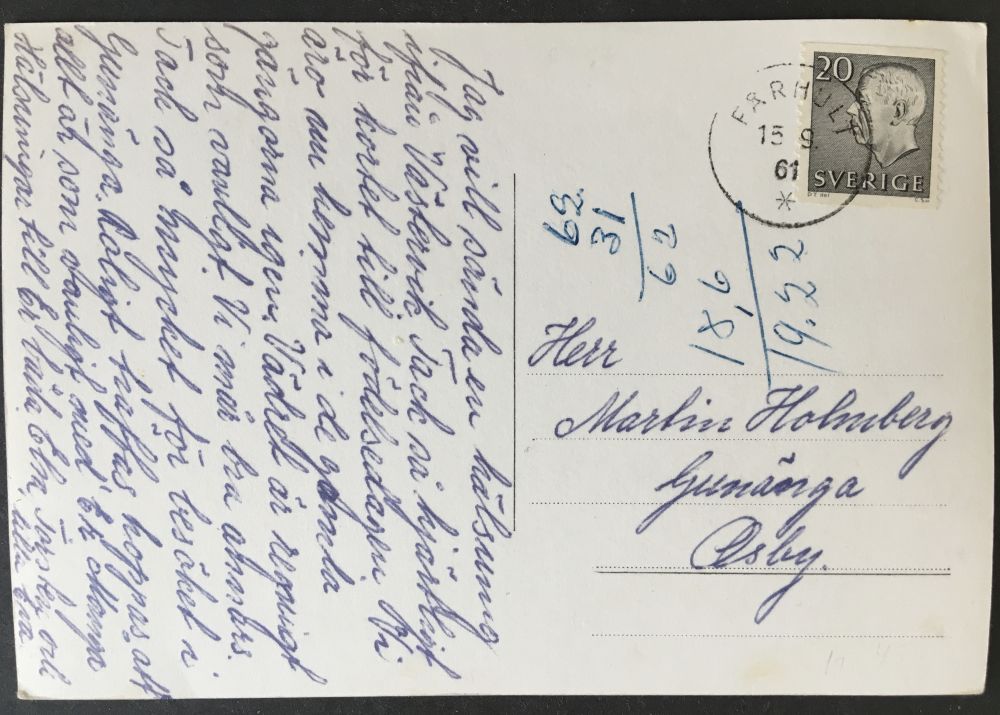 Jag vill sända en hälsning
ifrån Västervik Tack så hjärtligt
för kortet till födelsedagen. Vi
äro nu hemma i de gamla
gängorna igen. Vädret är regnigt
som vanligt. Vi mår bra annars.
Tack så mycket för besöket i
Gunnånga. Roligt träffas hoppas att
allt är som vanligt med Er Mamm
Hälsningar till Er båra Elna Torsten och
lilla Eva
FÅRHULT
15 9.
61
20
SVERIGE
62.
31
62
18,6
19.22
Herr
Martin Holmberg
Gunånga
Osby.